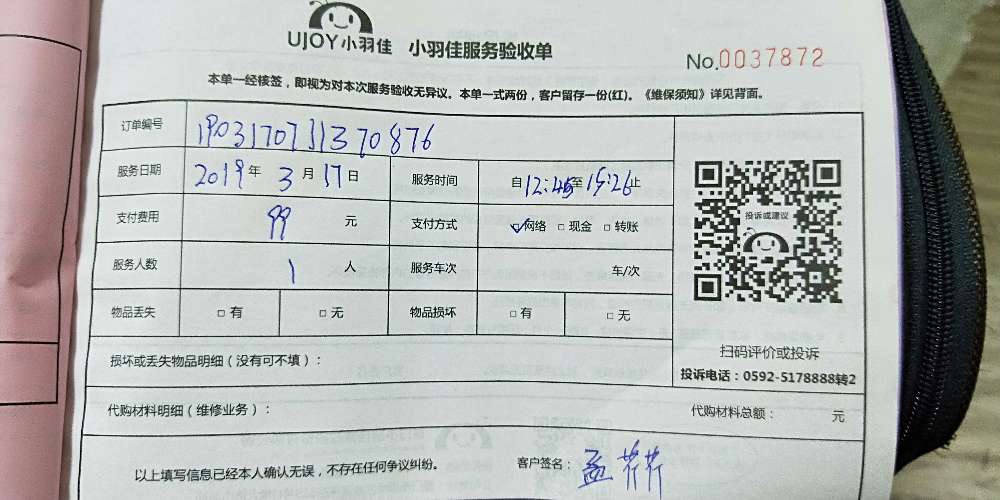 UJOY小羽佳 小羽佳服务验收单
No.0037872
本单一经核签，即视为对本次服务验收无异议。本单一式两份，客户留存一份(红)。《维保须知》详见背面。
订单编号 190317073137 0876
服务日期 2019年3月17日 服务时间 自12:45至15:26止
支付费用 99 元 支付方式 ☑网络 □现金 □转账
服务人数 1 人 服务车次 车/次
物品丢失 □有 □无 物品损坏 □有 □无
投诉或建议
扫码评价或投诉
投诉电话：0592-5178888转2
损坏或丢失物品明细（没有可不填）：
代购材料明细（维修业务）： 代购材料总额： 元
以上填写信息已经本人确认无误，不存在任何争议纠纷。 客户签名：孟芹芹